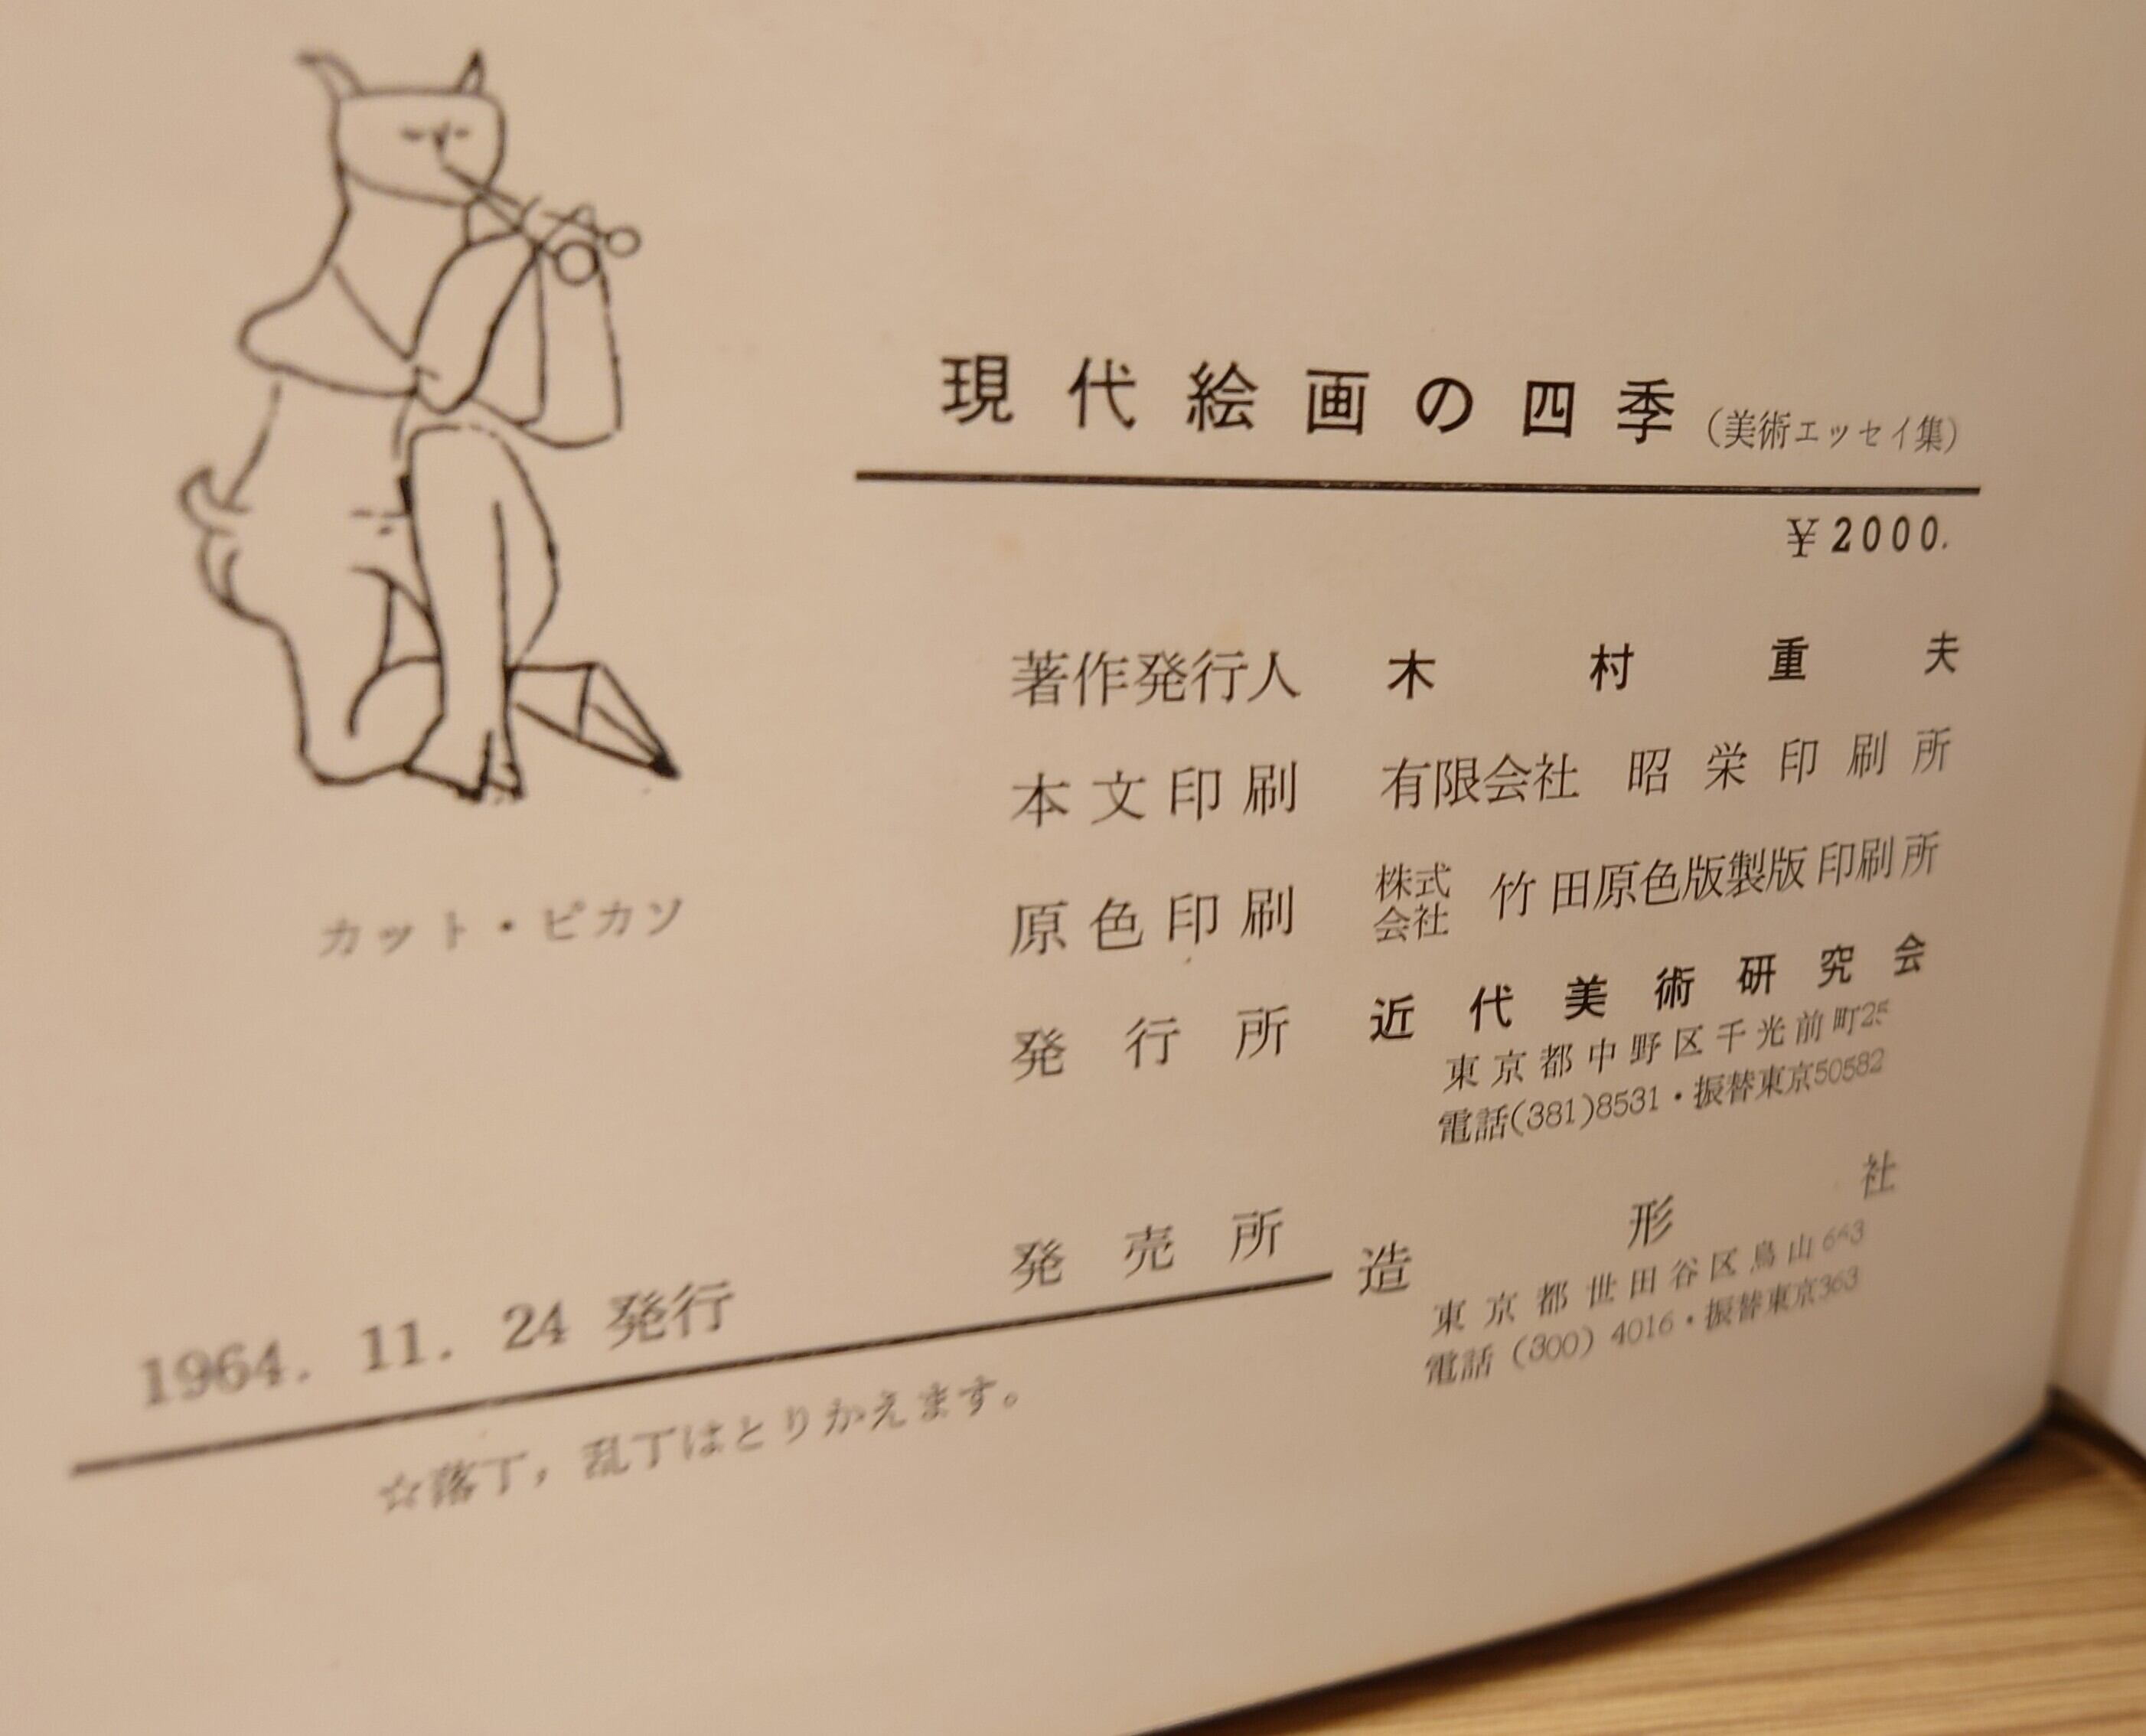 現代絵画の四季（美術エッセイ集）
￥2000.
著作発行人 木村重夫
本文印刷 有限会社 昭栄印刷所
原色印刷 株式会社 竹田原色版製版印刷所
発行所 近代美術研究会
東京都中野区千光前町25
電話(381)8531・振替東京50582
発売所 造形社
東京都世田谷区烏山
電話（300）4016・振替東京363
カット・ピカソ
1964. 11. 24 発行
☆落丁，乱丁はとりかえます。